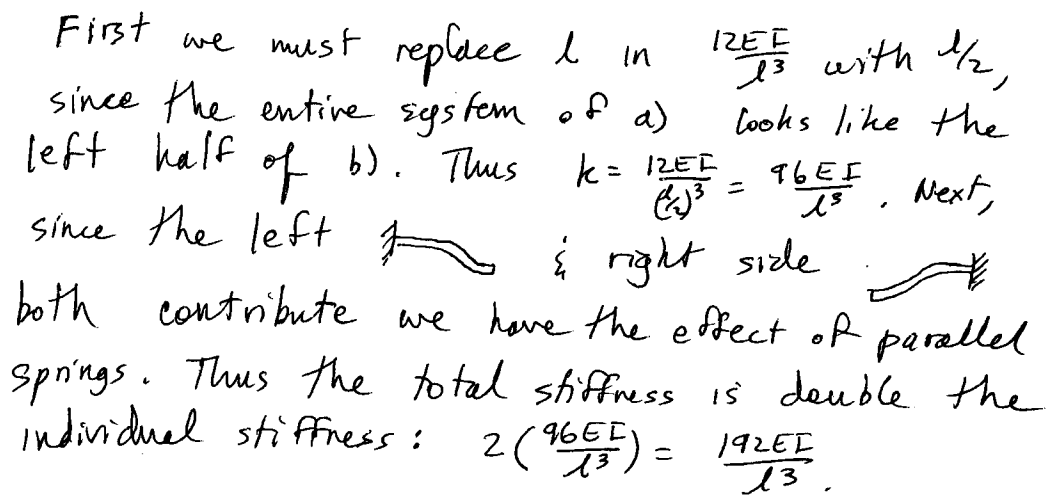 First we must replace l in 12EI/l³ with l/2,
since the entire system of a) looks like the
left half of b). Thus k = 12EI/(l/2)³ = 96EI/l³. Next,
since the left & right side
both contribute we have the effect of parallel
springs. Thus the total stiffness is double the
individual stiffness: 2(96EI/l³) = 192EI/l³.